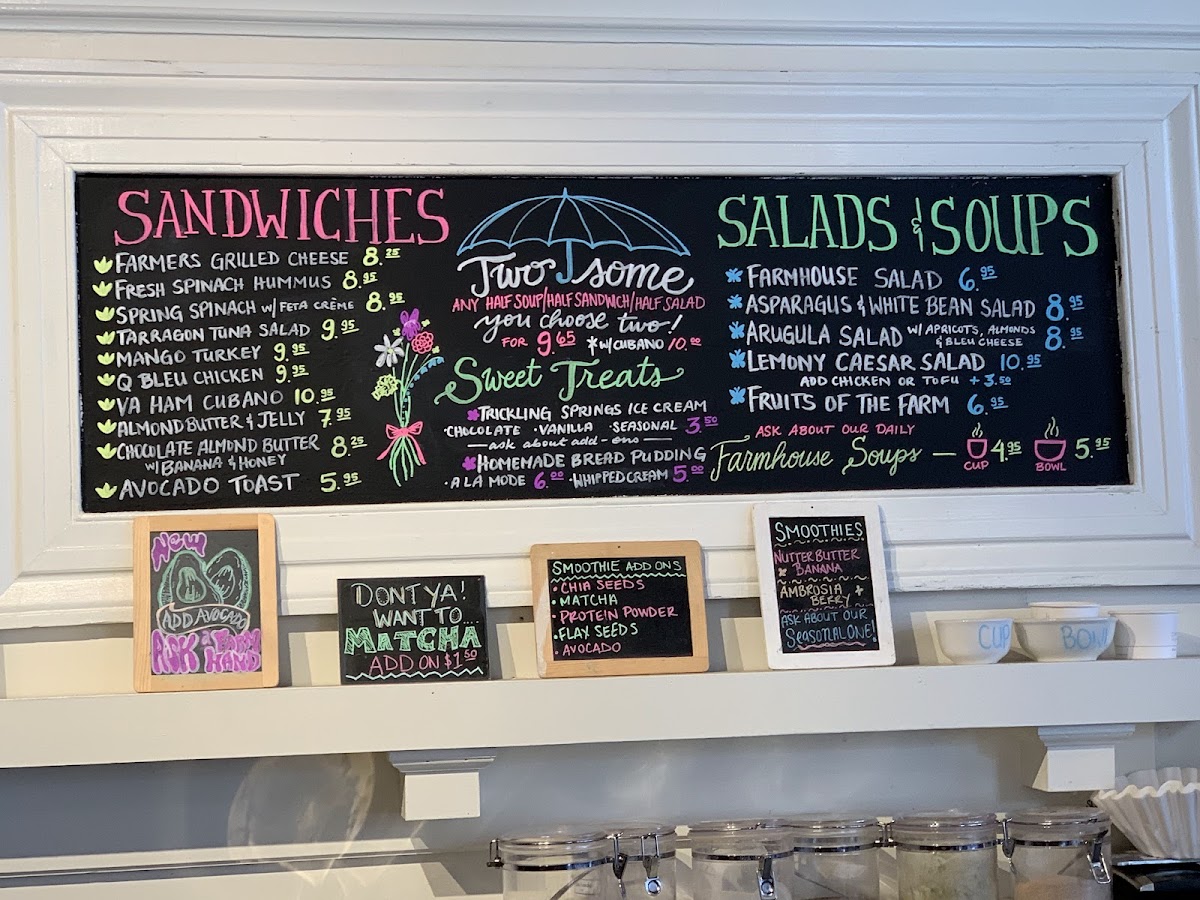 SANDWICHES
FARMERS GRILLED CHEESE 8.25
FRESH SPINACH HUMMUS 8.95
SPRING SPINACH W/ FETA CRÈME 8.95
TARRAGON TUNA SALAD 9.95
MANGO TURKEY 9.95
Q BLEU CHICKEN 9.95
VA HAM CUBANO 10.95
ALMOND BUTTER & JELLY 7.95
CHOCOLATE ALMOND BUTTER 8.25
W/ BANANA & HONEY
AVOCADO TOAST 5.95
Two some
ANY HALF SOUP/HALF SANDWICH/HALF SALAD
you choose two!
FOR 9.65 *W/CUBANO 10.00
Sweet Treats
TRICKLING SPRINGS ICE CREAM
·CHOCOLATE ·VANILLA ·SEASONAL 3.50
—ask about add-ons—
HOMEMADE BREAD PUDDING
·A LA MODE 6.00 ·WHIPPED CREAM 5.00
SALADS & SOUPS
FARMHOUSE SALAD 6.95
ASPARAGUS & WHITE BEAN SALAD 8.95
ARUGULA SALAD W/ APRICOTS, ALMONDS 8.95
& BLEU CHEESE
LEMONY CAESAR SALAD 10.95
ADD CHICKEN OR TOFU +3.50
FRUITS OF THE FARM 6.95
ASK ABOUT OUR DAILY
Farmhouse Soups — CUP 4.95 BOWL 5.95
New
ADD AVOCADO
ASK a FARM
HAND
DONT YA!
WANT TO...
MATCHA
ADD ON $1.50
SMOOTHIE ADD ONS
·CHIA SEEDS
·MATCHA
·PROTEIN POWDER
·FLAX SEEDS
·AVOCADO
SMOOTHIES
NUTTER BUTTER
BANANA
AMBROSIA
BERRY
ASK ABOUT OUR
SEASONAL ONE!
CUP
BOWL